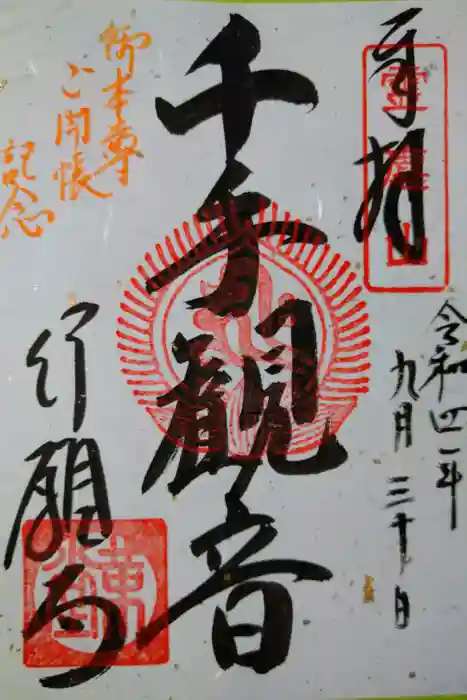 奉拝
令和四年
九月三十日
千手観音
御本尊
ご開帳
記念
行願寺